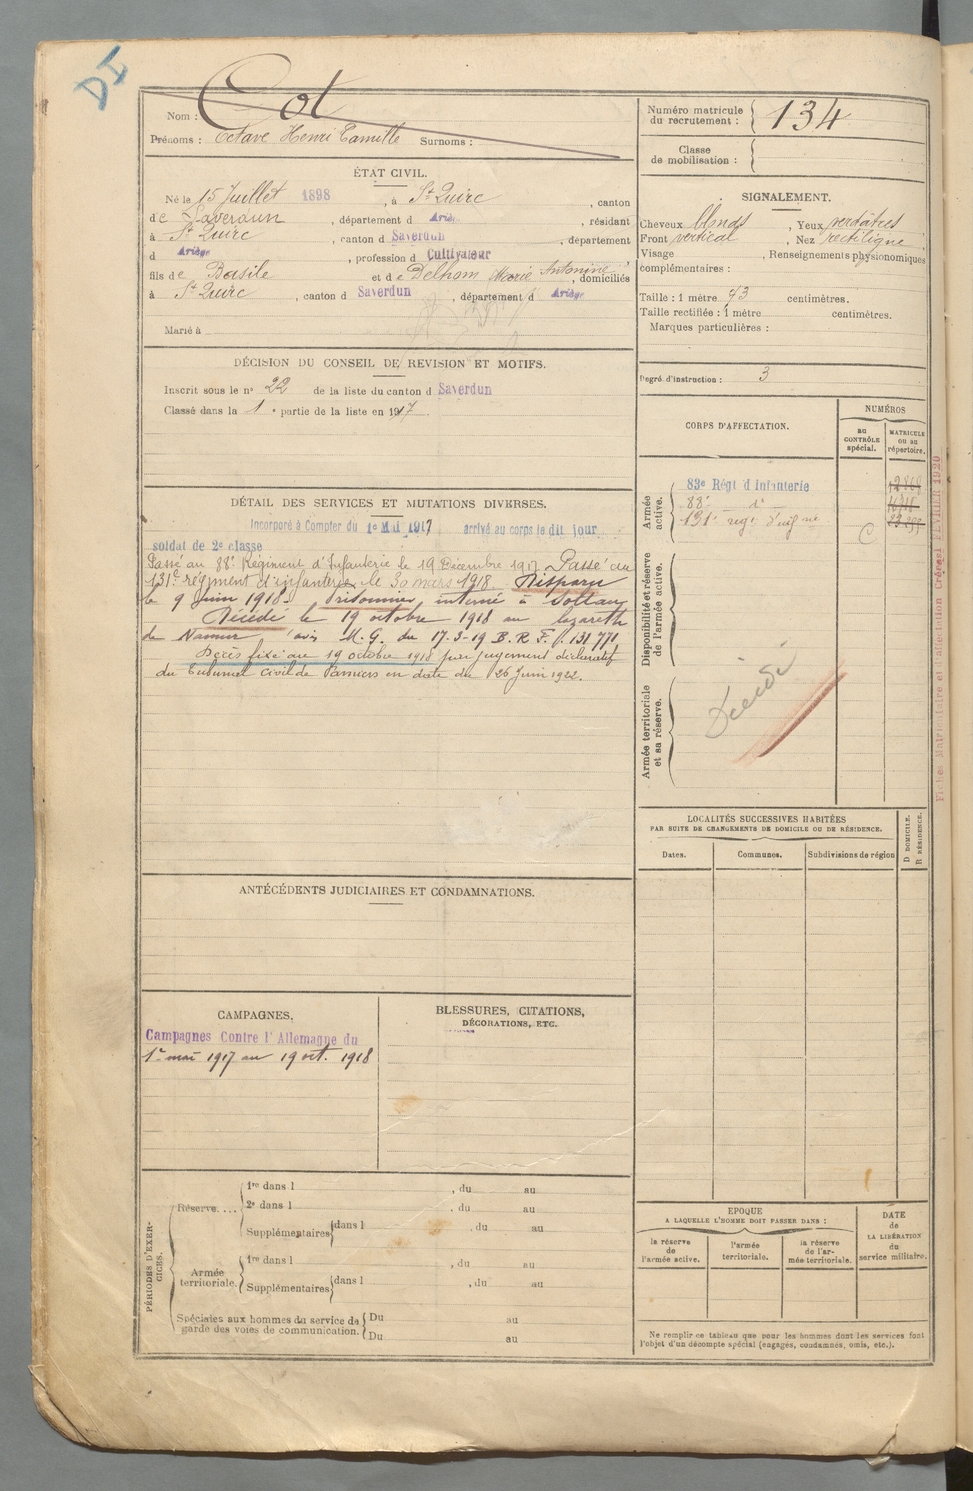 DI
Nom : Cot
Prénoms : Octave Henri Camille Surnoms :
Numéro matricule du recrutement : 134
Classe de mobilisation :
ÉTAT CIVIL.
Né le 15 Juillet 1898, à St Quirc, canton
de Saverdun, département d Ariège, résidant
à St Quirc, canton d Saverdun, département
d Ariège, profession d Cultivateur
fils de Basile et de Delhom Marie Antonine, domiciliés
à St Quirc, canton d Saverdun, département d Ariège
Marié à
DÉCISION DU CONSEIL DE REVISION ET MOTIFS.
Inscrit sous le n° 22 de la liste du canton d Saverdun
Classé dans la 1e partie de la liste en 1917.
DÉTAIL DES SERVICES ET MUTATIONS DIVERSES.
Incorporé à Compter du 1er Mai 1917 arrivé au corps le dit jour
soldat de 2e classe
Passé au 88e Régiment d'Infanterie le 19 Décembre 1917 Passé au
131e régiment d'infanterie le 30 mars 1918. Disparu
le 9 Juin 1918. Prisonnier interné à Soltau
Décédé le 19 octobre 1918 au lazareth
de Namur (avis M.G. du 17-3-19 B.R.F. 131771
Décès fixé au 19 octobre 1918 par jugement déclaratif
du Tribunal civil de Pamiers en date du 26 Juin 1922.
ANTÉCÉDENTS JUDICIAIRES ET CONDAMNATIONS.
CAMPAGNES,
Campagnes Contre l'Allemagne du
1er mai 1917 au 19 oct. 1918
BLESSURES, CITATIONS,
DÉCORATIONS, ETC.
PÉRIODES D'EXERCICES.
Réserve....
1re dans l , du au
2e dans l , du au
Supplémentaires dans l , du au
Armée territoriale.
1re dans l , du au
Supplémentaires dans l , du au
Spéciales aux hommes du service de garde des voies de communication.
Du au
Du au
SIGNALEMENT.
Cheveux blonds, Yeux verdâtres
Front vertical, Nez rectiligne
Visage , Renseignements physionomiques
complémentaires :
Taille : 1 mètre 73 centimètres.
Taille rectifiée : 1 mètre centimètres.
Marques particulières :
Degré d'instruction : 3
CORPS D'AFFECTATION.
NUMÉROS
au CONTRÔLE spécial.
MATRICULE ou au répertoire.
Armée active.
83e Régt d'Infanterie
88e d°
131e regt d'infnie
C
Disponibilité et réserve de l'armée active.
Armée territoriale et sa réserve.
Décédé
LOCALITÉS SUCCESSIVES HABITÉES
PAR SUITE DE CHANGEMENTS DE DOMICILE OU DE RÉSIDENCE.
Dates.
Communes.
Subdivisions de région
D DOMICILE.
R RÉSIDENCE.
EPOQUE
A LAQUELLE L'HOMME DOIT PASSER DANS :
la réserve de l'armée active.
l'armée territoriale.
la réserve de l'armée territoriale.
DATE de LA LIBÉRATION du service militaire.
Ne remplir ce tableau que pour les hommes dont les services font
l'objet d'un décompte spécial (engagés, condamnés, omis, etc.).